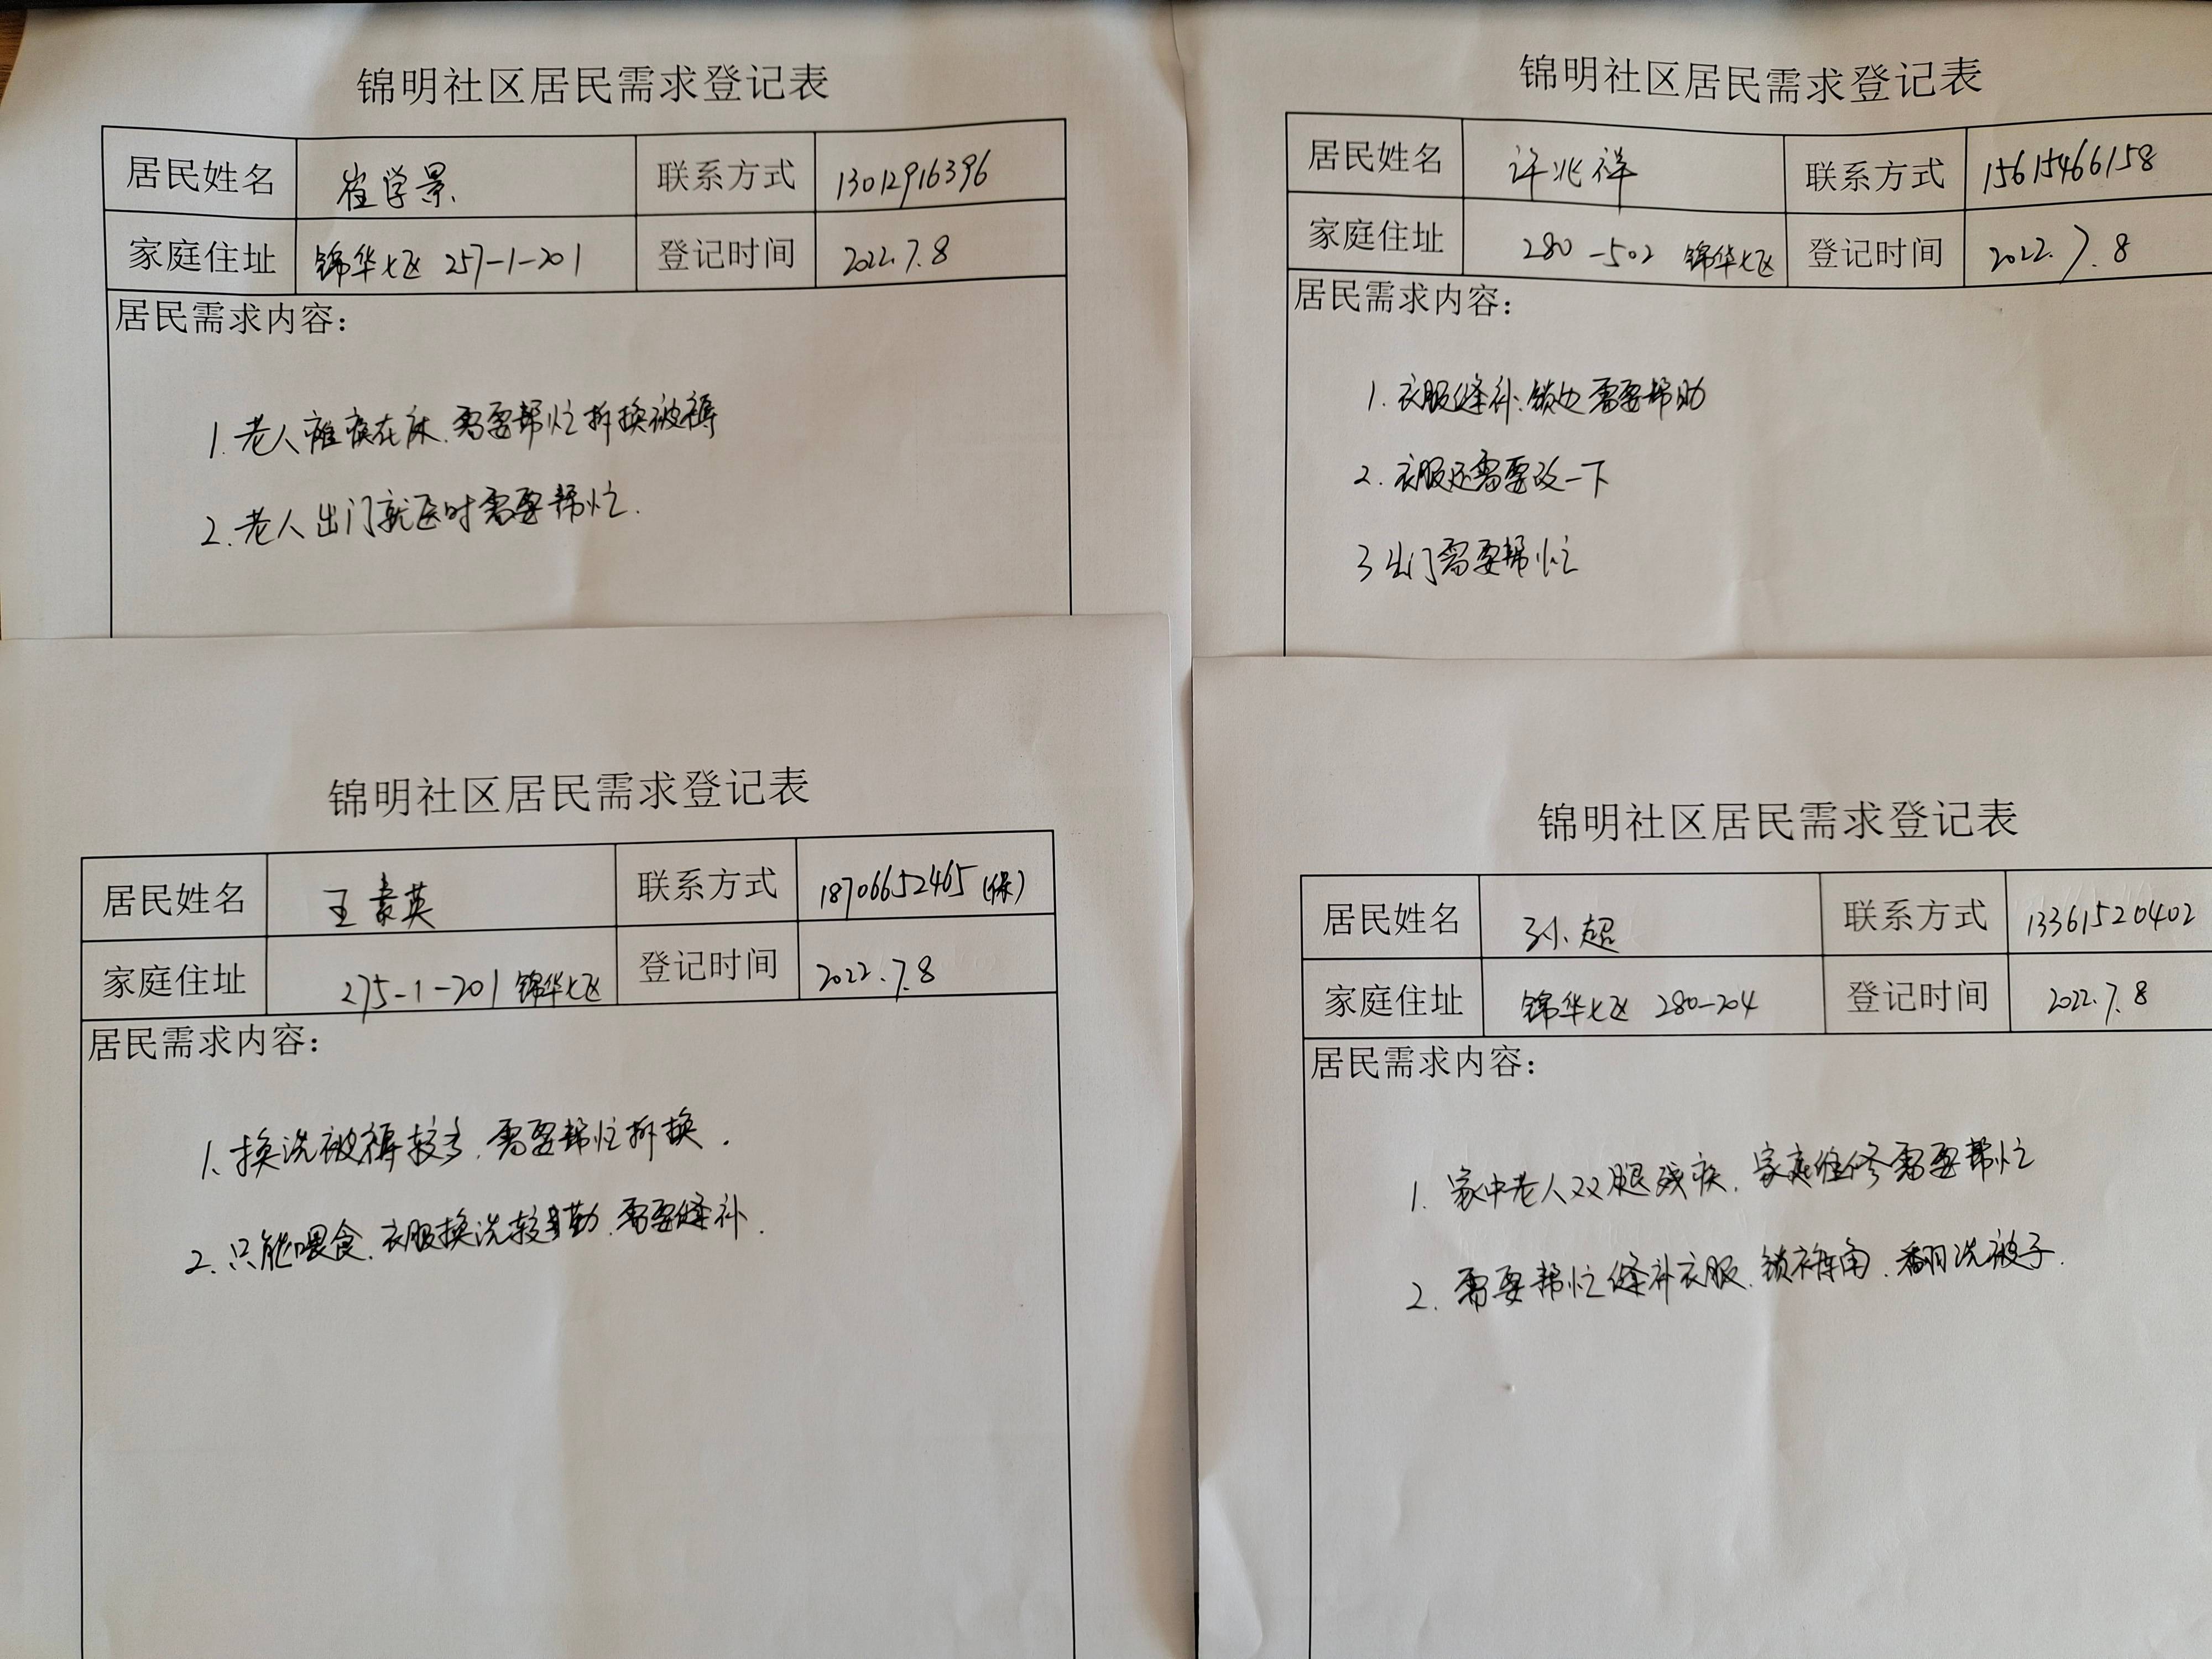 锦明社区居民需求登记表
居民姓名 崔学景 联系方式 13012916396
家庭住址 锦华七区 257-1-201 登记时间 2022.7.8
居民需求内容：
1.老人瘫痪在床.需要帮忙拆换被褥
2.老人出门就医时需要帮忙.
锦明社区居民需求登记表
居民姓名 许兆祥 联系方式 15615466158
家庭住址 280-502 锦华七区 登记时间 2022.7.8
居民需求内容：
1.衣服缝补.锁边需要帮助
2.衣服还需要改一下
3出门需要帮忙
锦明社区居民需求登记表
居民姓名 王素英 联系方式 18706652465(保)
家庭住址 275-1-201 锦华七区 登记时间 2022.7.8
居民需求内容：
1.换洗被褥较多.需要帮忙拆换.
2.只能喂食.衣服换洗较勤.需要缝补.
锦明社区居民需求登记表
居民姓名 孙超 联系方式 13361520402
家庭住址 锦华七区 280-204 登记时间 2022.7.8
居民需求内容：
1.家中老人双腿残疾.家庭维修需要帮忙
2.需要帮忙缝补衣服.锁裤角.翻洗被子.